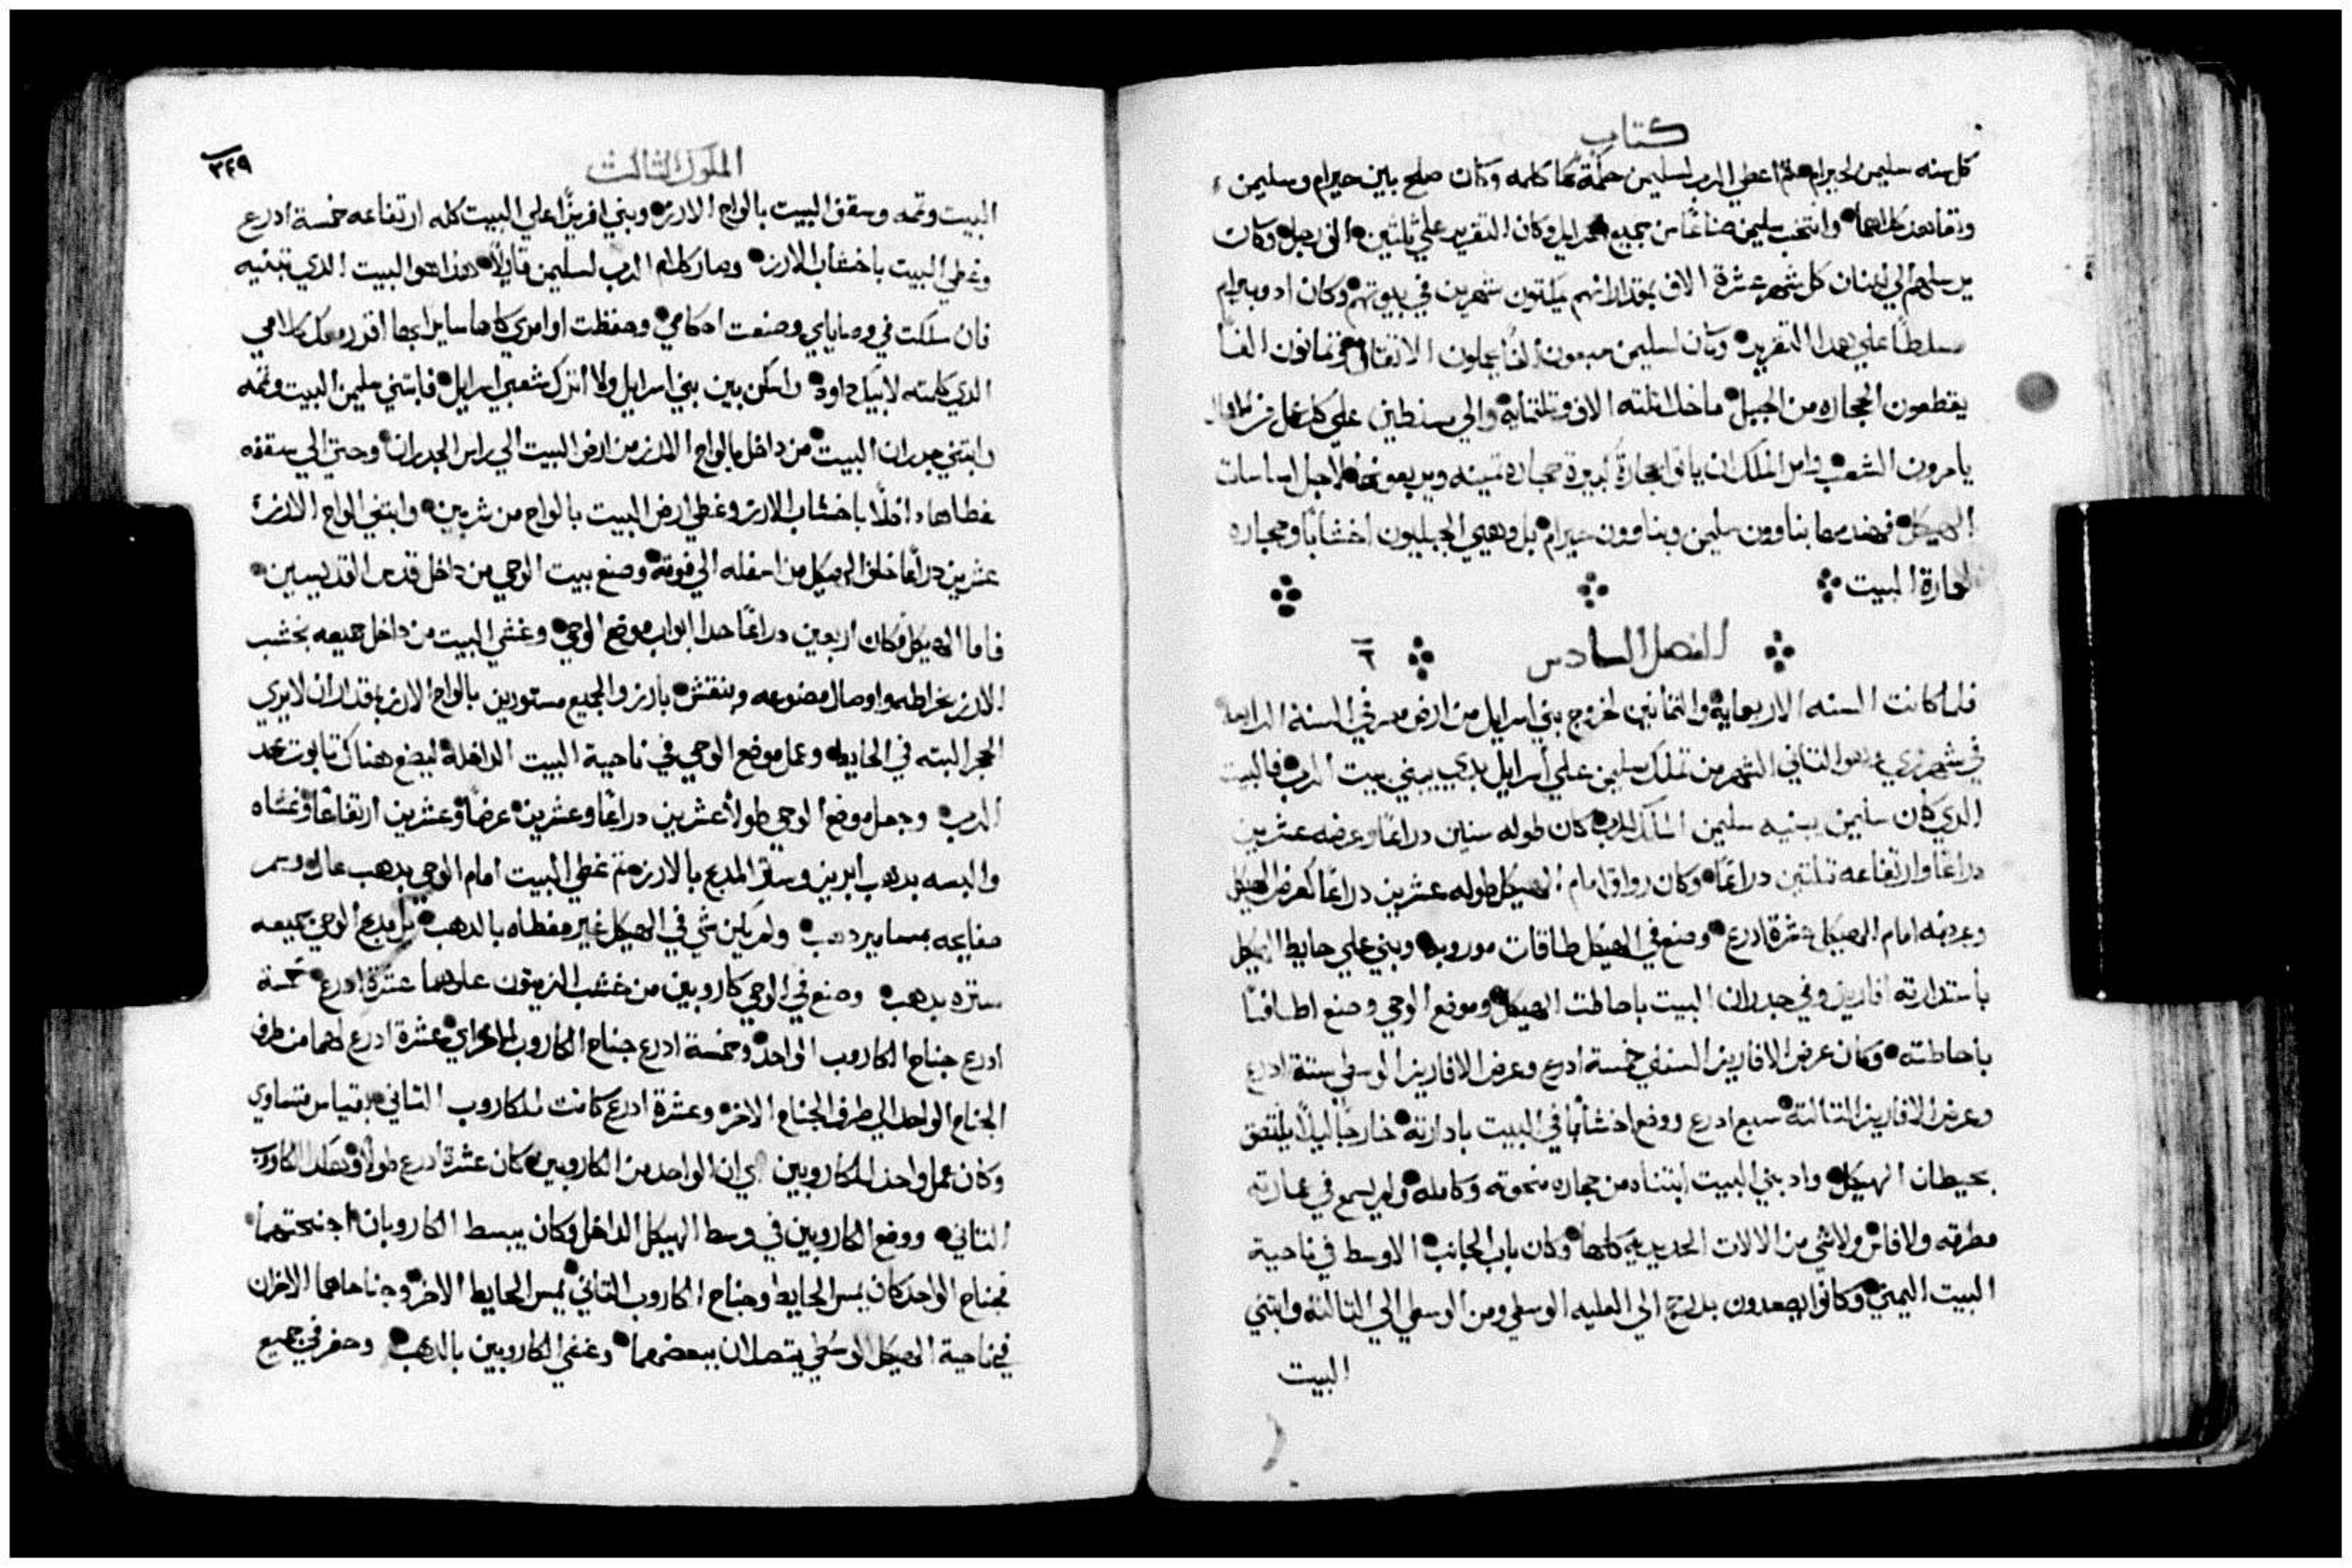 كتاب
كل سنه سليمن لحيرام ثم اعطي الرب لسليمن حكمة كما كلمه وكان صلح بين حيرام وسليمن
وتعاهدا كلاهما وانتخب سليمن صناعًا من جميع اسرايل وكان التقرير علي ثلثين الف رجل وكان
يرسلهم الي لبنان كل شهر عشرة الاف بمقدار انهم يمكثون شهرين في بيوتهم وكان ادونيرام
مسلطًا علي هدا التقرير وكان لسليمن سبعون الفًا يحملون الاتقال وتمانون الفًا
يقطعون الحجاره من الجبل ما خلا تلته الاف وتلتمايه والي مسلطين علي كل عمل من الاعمال
يامرون الشعب فامر الملك ان ياتوا بحجارة كبيرة حجاره تمينه ويربعونها لاجل اساسات
الهيكل فهندمها بناوون سليمن وبناوون حيرام بل وهيي الجبليون اخشابًا وحجاره
لعمارة البيت
الفصل السادس ٦
فلما كانت السنه الاربعمايه والتمانين لخروج بني اسرايل من ارض مصر في السنة الرابعة
في شهر زي وهو التاني الشهر من تملك سليمن علي اسرايل بدي يبني بيت الرب فالبيت
الدي كان سليمن يبنيه سليمن الملك للرب كان طوله ستين دراعًا وعرضه عشرين
دراعًا وارتفاعه تلتين دراعًا وكان رواق امام الهيكل طوله عشرين دراعًا كعرض الهيكل
وعرضه امام الهيكل عشرة ادرع وصنع في الهيكل طاقات موروبه وبني علي حايط الهيكل
باستدارته افاريز وفي جدران البيت باحاطت الهيكل وموضع الوحي وصنع اطافًا
باحاطته وكان عرض الافاريز السفلي خمسة ادرع وعرض الافاريز الوسطي ستة ادرع
وعرض الافاريز التالتة سبع ادرع ووضع اخشابًا في البيت بادارته خارجًا ليلا يلتصق
بحيطان الهيكل واد بني البيت ابتناه من حجاره منحوته وكامله ولم يسمع في عمارته
مطرقه ولا فاس ولا شي من الالات الحديديه كلها وكان باب الجانب الاوسط في ناحية
البيت اليمني وكانوا يصعدون بدرج الي العليه الوسطي ومن الوسطي الي التالتة وابتني
البيت
الملوك الثالث
٣٤٩
البيت وتمه وسقف البيت بالواح الارز وبني افريزًا علي البيت كله ارتفاعه خمسة ادرع
وغطي البيت باخشاب الارز وصار كلام الرب لسليمن قايلًا هذا هو البيت الدي تبنيه
فان سلكت في وصاياي وصنعت احكامي وحفظت اوامري كلها سايرًا بها اقرر معك كلامي
الدي كلمته لابيك داود واسكن بين بني اسرايل ولا اترك شعبي اسرايل فابتني سليمن البيت وتمه
وابتني جدران البيت من داخل بالواح الارز من ارض البيت الي راس الجدران وحتي الي سقفه
غطاها داخلًا باخشاب الارز وغطي ارض البيت بالواح من شربين وابتني الواح الارز
عشرين دراعًا خلف الهيكل من اسفله الي فوقه وصنع بيت الوحي من داخل قدس القديسين
فاما الهيكل فكان اربعين دراعًا حدا ابواب موضع الوحي وغشي البيت من داخل جميعه بخشب
الارز بخراطه واوصال مصنوعه وبنقش بارز والجميع مستورين بالواح الارز بمقدار ان لا يري
الحجر البته في الحايط وعمل موضع الوحي في ناحية البيت الداخلة ليضع هناك تابوت عهد
الرب وجعل موضع الوحي طولًا عشرين دراعًا وعشرين عرضًا وعشرين ارتفاعًا وغشاه
والبسه بدهب ابريز وستر المدبح بالارز ثم غطي البيت امام الوحي بدهب عال وسمر
صفايحه بمسامير دهب ولم يكن شي في الهيكل غير مغطاه بالدهب بل مدبح الوحي جميعه
ستره بدهب وصنع في الوحي كاروبين من خشب الزيتون علوهما عشرة ادرع خمسة
ادرع جناح الكاروب الواحد وخمسة ادرع جناح الكاروب الاخر اي عشرة ادرع لهما من طرف
الجناح الواحد الي طرف الجناح الاخر وعشرة ادرع كانت للكاروب التاني بقياس متساوي
وكان عمل واحد للكاروبين اي ان الواحد من الكاروبين كان عشرة ادرع طولًا وهكدا الكاروب
التاني ووضع الكاروبين في وسط الهيكل الداخل وكان يبسط الكاروبان اجنحتهما
فجناح الواحد كان يمس الحايط وجناح الكاروب التاني يمس الحايط الاخر وجناحاهما الاخران
في ناحية الهيكل الوسطي يتصلان ببعضهما وغشي الكاروبين بالدهب وحفر في جميع